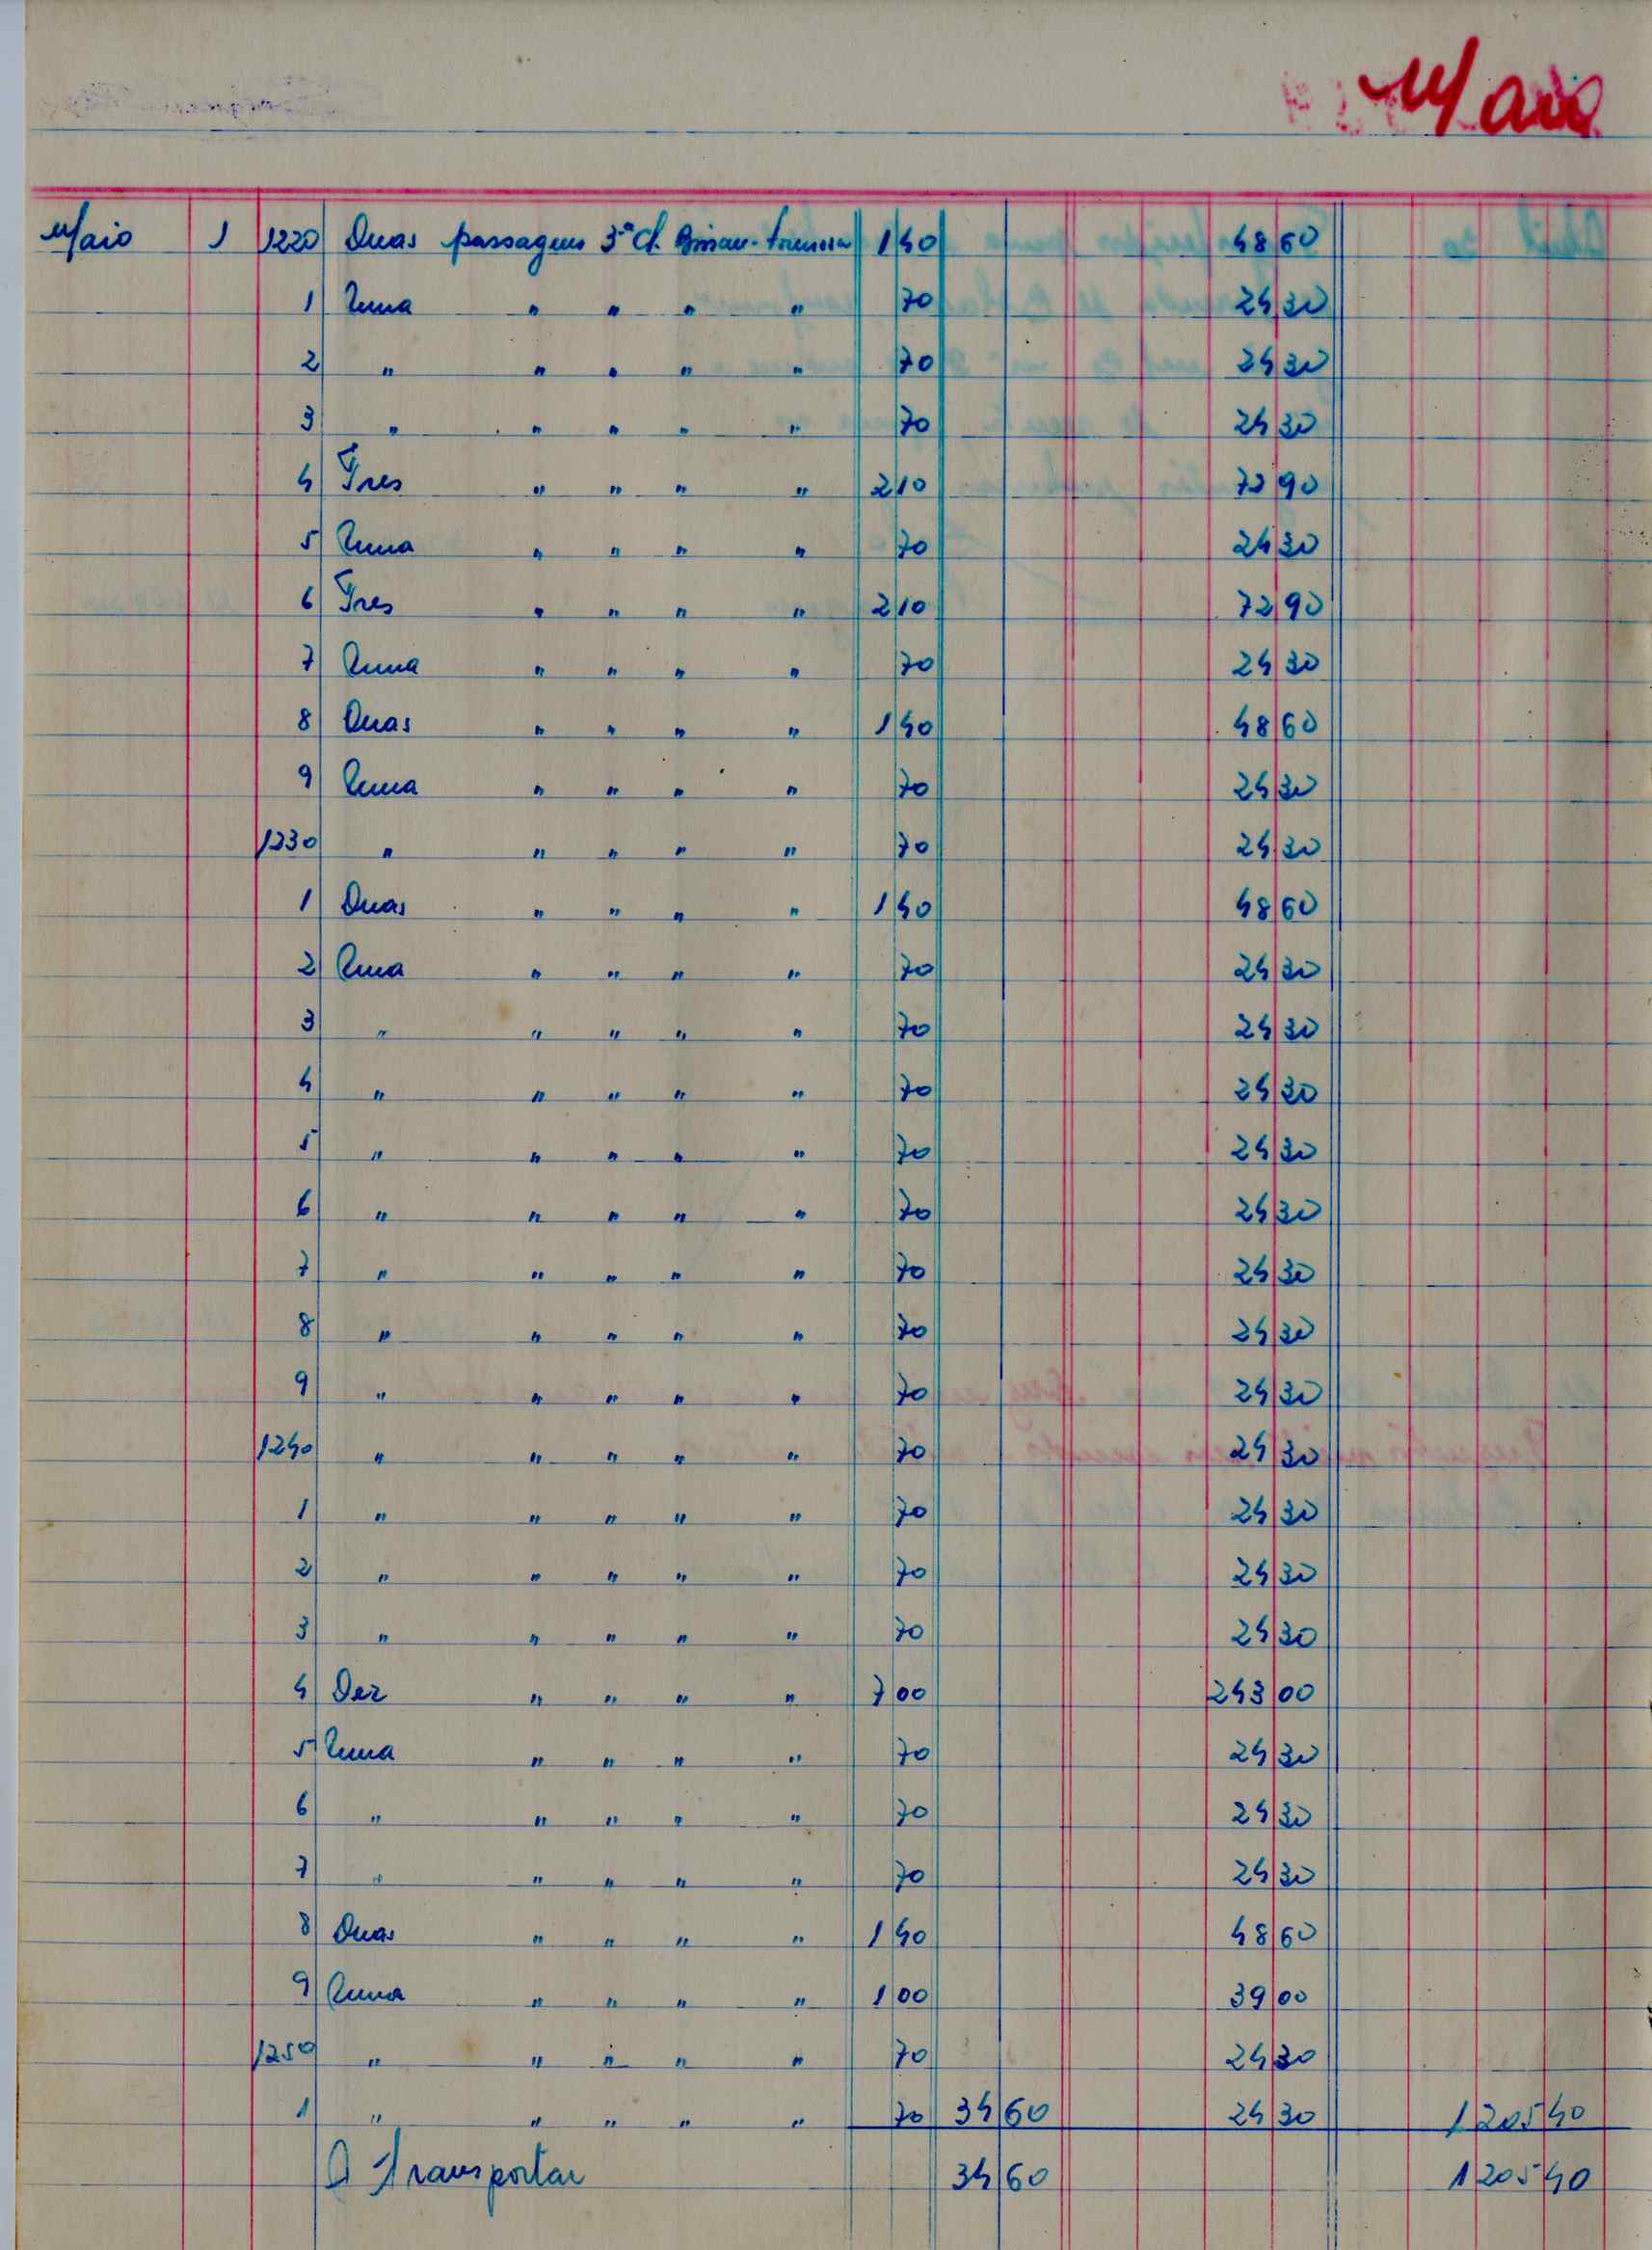 Maio
Maio 1 1220 Duas passagens 3ª Cl. Bissau- 1 40 48 60
1 Uma " " " " 70 24 30
2 " " " " " 70 24 30
3 " " " " " 70 24 30
4 Tres " " " " 2 10 72 90
5 Uma " " " " 70 24 30
6 Tres " " " " 2 10 72 90
7 Uma " " " " 70 24 30
8 Duas " " " " 1 40 48 60
9 Uma " " " " 70 24 30
1230 " " " " " 70 24 30
1 Duas " " " " 1 40 48 60
2 Uma " " " " 70 24 30
3 " " " " " 70 24 30
4 " " " " " 70 24 30
5 " " " " " 70 24 30
6 " " " " " 70 24 30
7 " " " " " 70 24 30
8 " " " " " 70 24 30
9 " " " " " 70 24 30
1240 " " " " " 70 24 30
1 " " " " " 70 24 30
2 " " " " " 70 24 30
3 " " " " " 70 24 30
4 Dez " " " " 7 00 243 00
5 Uma " " " " 70 24 30
6 " " " " " 70 24 30
7 " " " " " 70 24 30
8 Duas " " " " 1 40 48 60
9 Uma " " " " 1 00 39 00
1250 " " " " " 70 24 30
1 " " " " " 70 34 60 24 30 1 205 40
A Transportar 34 60 1 205 40